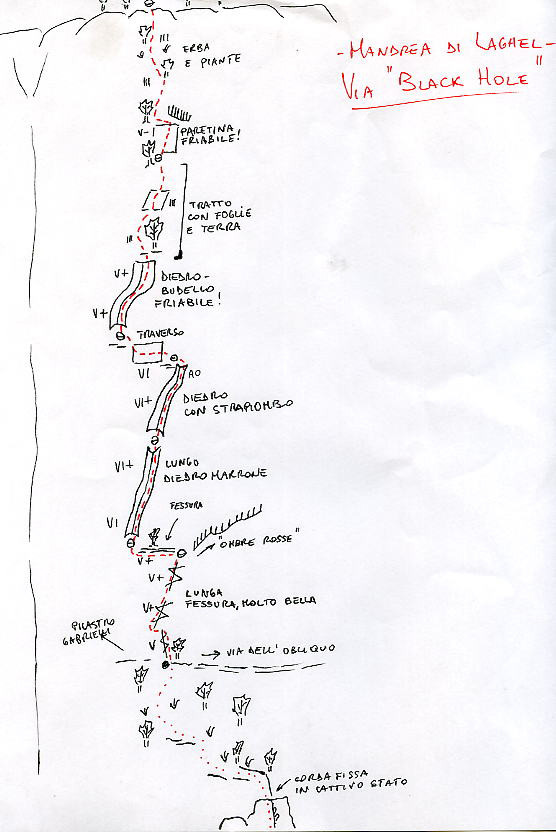 - MANDREA DI LAGHEL -
VIA "BLACK HOLE"
III
ERBA
E PIANTE
III
V-I
PARETINA
FRIABILE!
III
TRATTO
CON FOGLIE
E TERRA
III
V+
DIEDRO-
BUDELLO
FRIABILE!
V+
TRAVERSO
VI
A0
VI+
DIEDRO
CON STRAPIOMBO
VI+
LUNGO
DIEDRO MARRONE
VI
FESSURA
V+
"OMBRE ROSSE"
V+
LUNGA
FESSURA, MOLTO BELLA
V+
V
PILASTRO
GABRIELLI
VIA DELL'OBLIQUO
CORDA FISSA
IN CATTIVO STATO